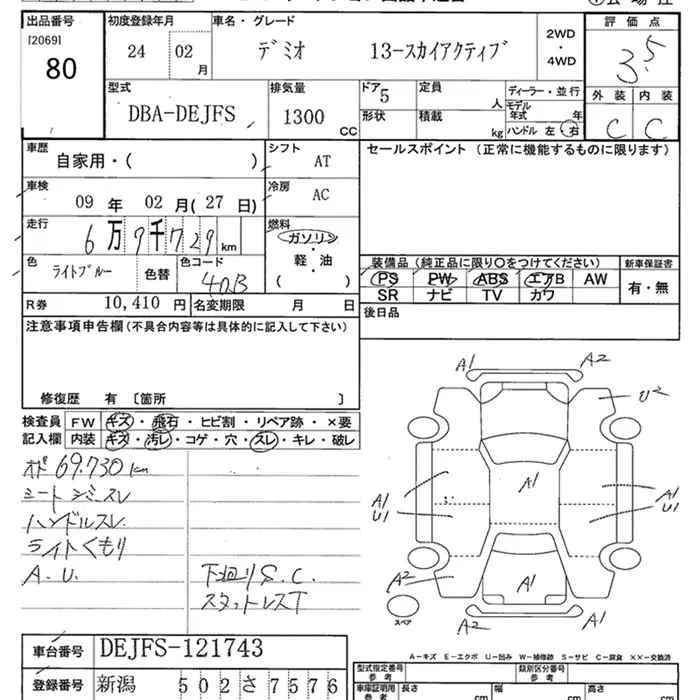 出品番号
[2069]
80
初度登録年月
24 02 月
車名・グレード
デミオ 13-スカイアクティブ
2WD
・
4WD
評価点
3.5
外装 内装
C C
型式
DBA-DEJFS
排気量
1300 CC
ドア 5
形状
定員 人
積載 kg
ディーラー・並行
モデル年式 年
ハンドル 左 右
車歴
自家用・( )
シフト
AT
セールスポイント (正常に機能するものに限ります)
車検
09 年 02 月(27 日)
冷房
AC
走行
6万9千729 km
燃料
ガソリン
軽・油
( )
色
ライトブルー
色替
色コード
40B
装備品 (純正品に限り○をつけてください)
PS PW ABS エアB AW
SR ナビ TV カワ
新車保証書
有・無
R券 10,410 円
名変期限 月 日
後日品
注意事項申告欄 (不具合内容等は具体的に記入して下さい)
修復歴 有 〔箇所 〕
検査員記入欄
FW キズ・飛石・ヒビ割・リペア跡・×要
内装 キズ・汚レ・コゲ・穴・スレ・キレ・破レ
オド 69.730 km
シートシミスレ
ハンドルスレ
ライトくもり
A.U.
下廻りS.C.
スタットレスT
A1 A2
U2
A1
U1
A1
A1
U1
A2
A1
スペア
A2 A2
A-キズ E-エクボ U-凹み W-補修跡 S-サビ C-腐食 ××-交換済
車台番号 DEJFS-121743
登録番号 新潟 502 さ 7576
型式指定番号
参考
類別区分番号
参考
車庫証明用
参考
長さ cm
幅 cm
高さ cm